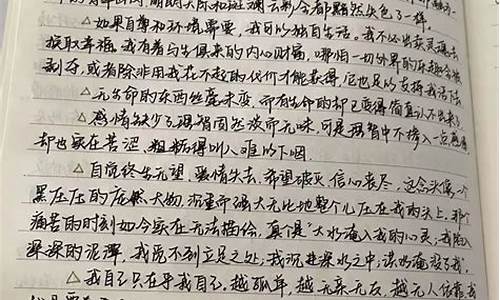 △如果自尊和环境需要，我可以独自生活。我不必出卖灵魂去
换取幸福。我有着与生俱来的内心财富，哪怕一切外界的乐趣全被
剥夺，或者除非用我付不起的代价才能获得，它也足以支持我活下去。
△无生命的东西丝毫未变，而有生命的却已变得简直认不出来了
△感情缺少了理智固然淡而无味，可是理智中不掺入一点感情
却也实在苦涩、粗糙得叫人难以下咽。
△自觉终生无望，爱情失去，希望破灭，信心丧尽，这念头像一个
黑压压的庞然大物，沉重而强大无比地整个儿压在我的头上，那个
痛苦的时刻如今实在无法描绘，真个是"大水淹入我的心灵，我陷入
深深的泥潭，我觉不到立足之处；我沉进深水之中；洪水淹没了我"。
△我自己只在乎我自己，越孤单，越无亲无友，越无人依靠